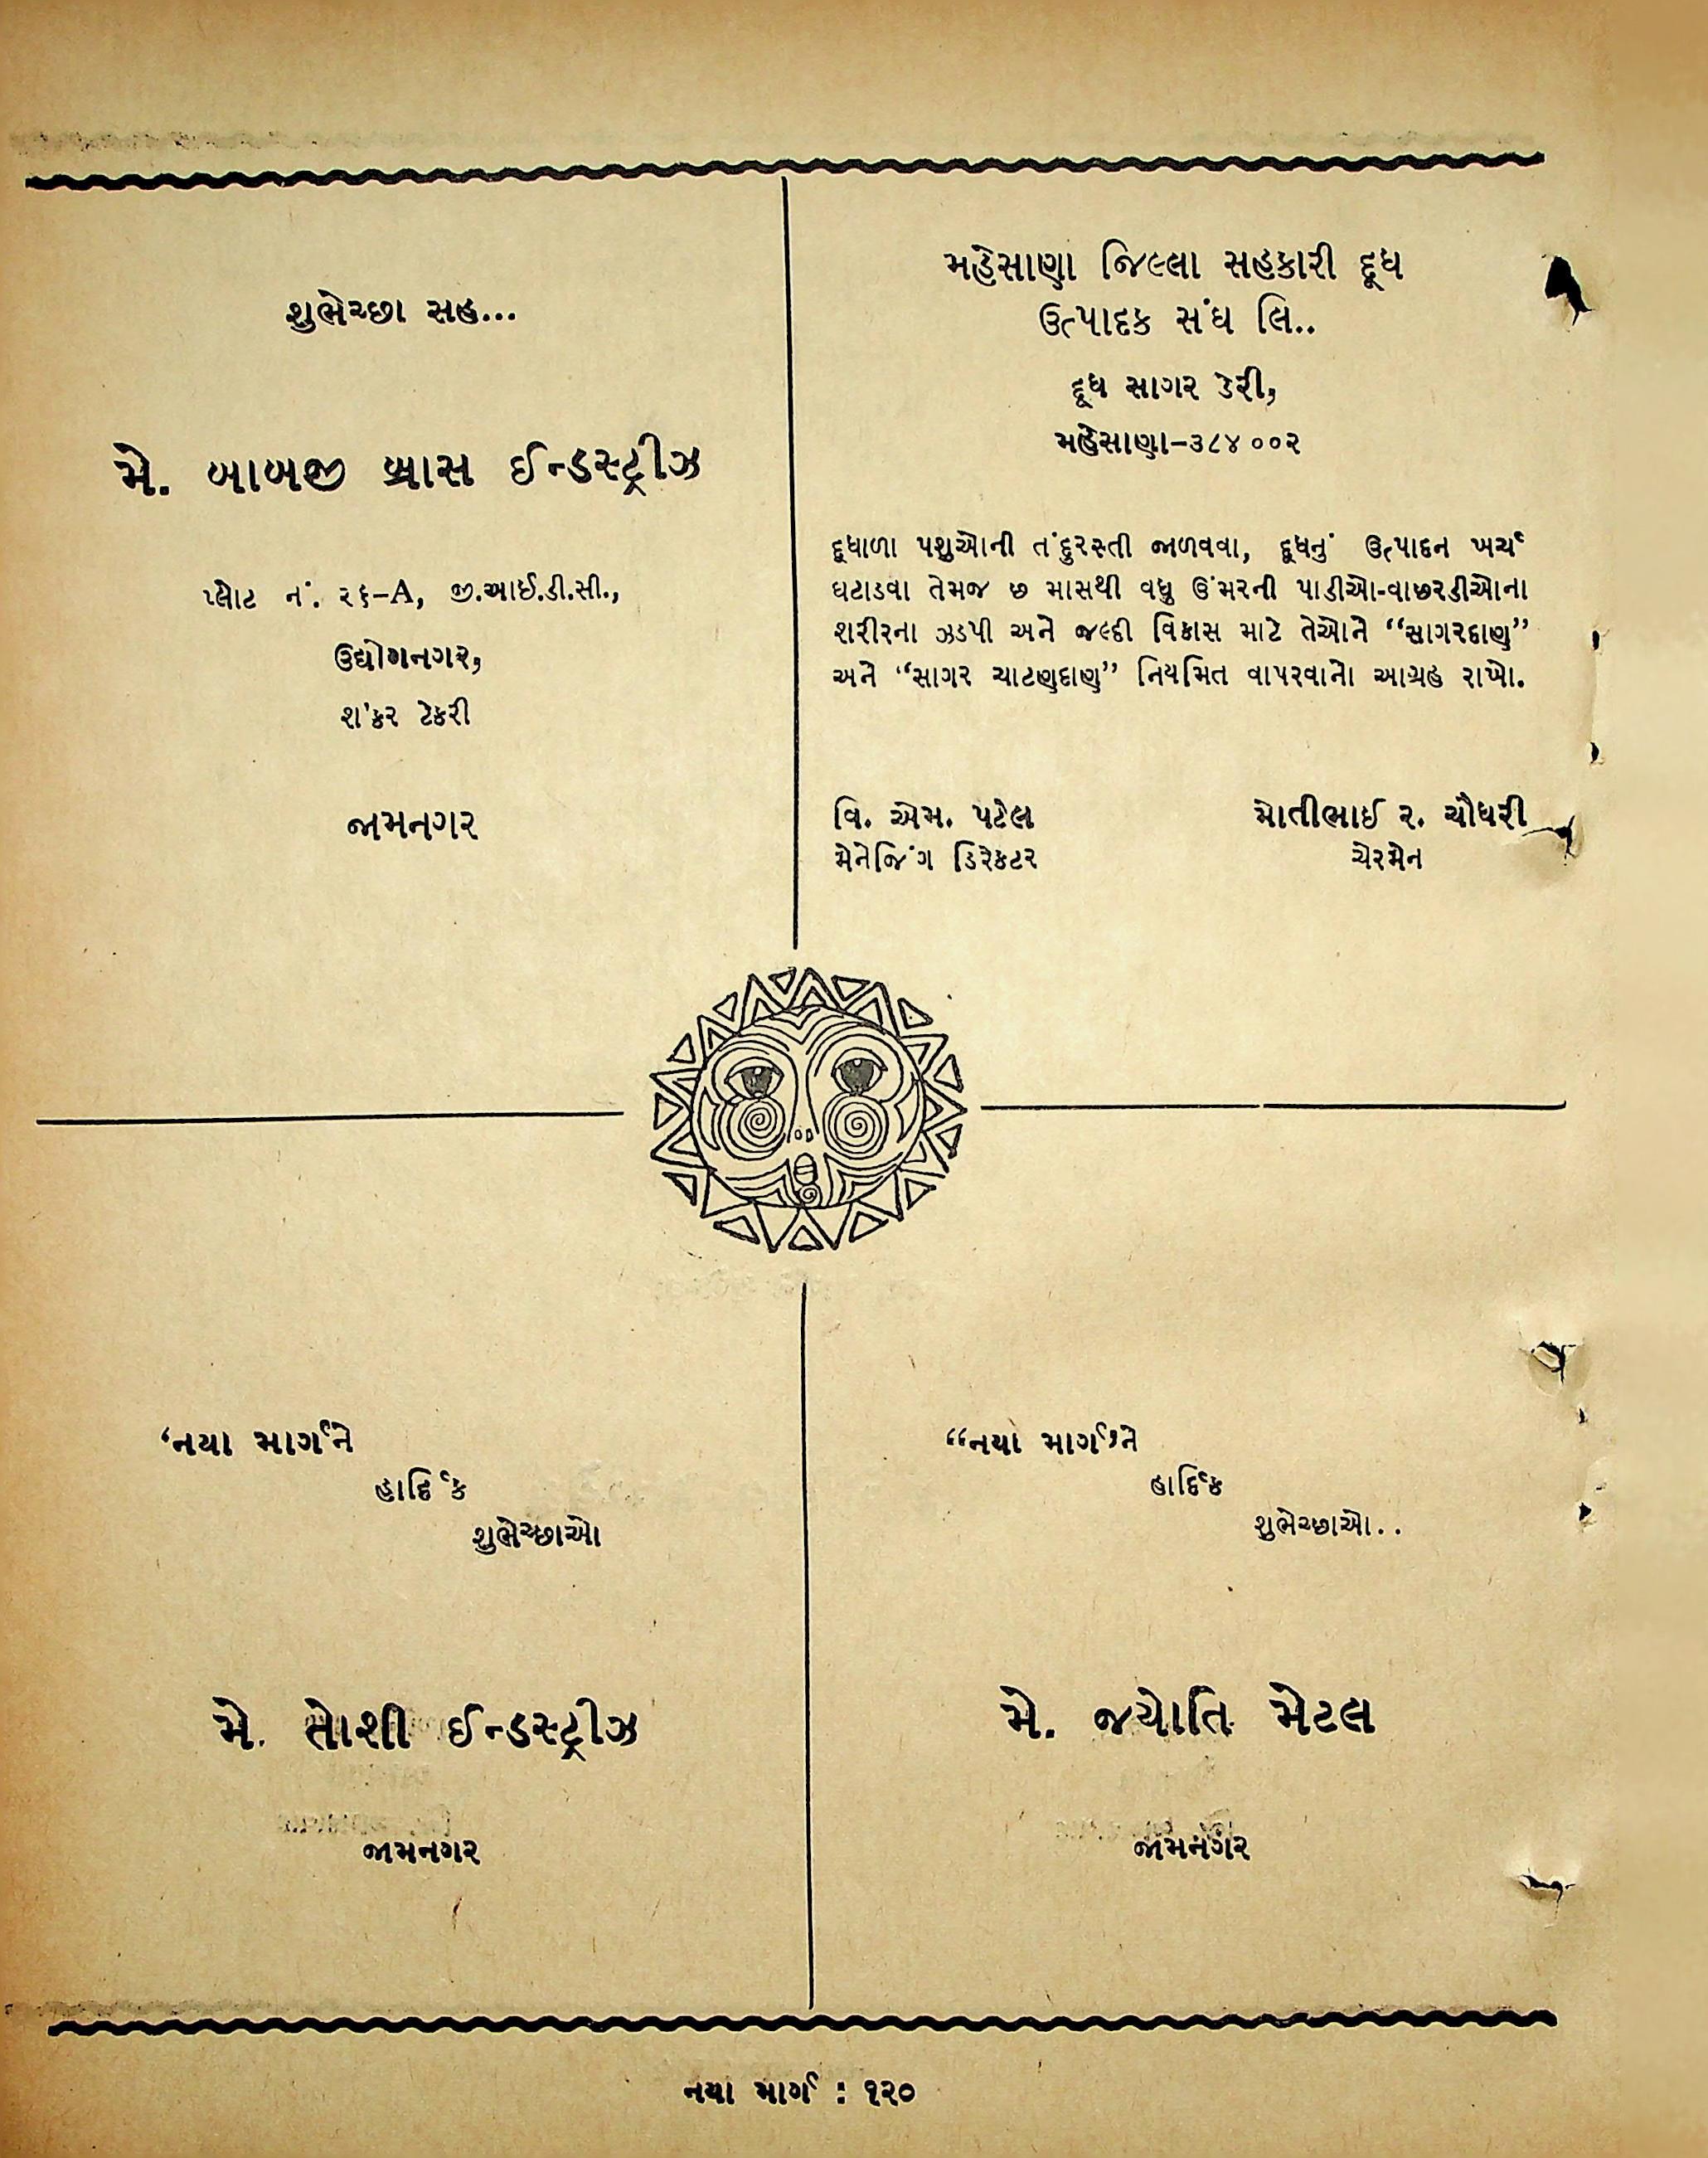 શુભેચ્છા સહ...
મે. બાબજી બ્રાસ ઈન્ડસ્ટ્રીઝ
પ્લોટ નં. ૨૬–A, જી.આઈ.ડી.સી.,
ઉદ્યોગનગર,
શંકર ટેકરી
જામનગર
મહેસાણા જિલ્લા સહકારી દૂધ
ઉત્પાદક સંઘ લિ..
દૂધ સાગર ડેરી,
મહેસાણા–૩૮૪૦૦૨
દૂધાળા પશુઓની તંદુરસ્તી જાળવવા, દૂધનું ઉત્પાદન ખર્ચ
ઘટાડવા તેમજ છ માસથી વધુ ઉંમરની પાડીઓ-વાછરડીઓના
શરીરના ઝડપી અને જલ્દી વિકાસ માટે તેઓને “સાગરદાણ”
અને “સાગર ચાટણદાણ” નિયમિત વાપરવાનો આગ્રહ રાખો.
વિ. એમ. પટેલ
મેનેજિંગ ડિરેકટર
મોતીભાઈ ર. ચૌધરી
ચેરમેન
‘નયા માર્ગને
હાર્દિક
શુભેચ્છાઓ
મે. તોશી ઈન્ડસ્ટ્રીઝ
જામનગર
“નયા માર્ગ’ને
હાર્દિક
શુભેચ્છાઓ..
મે. જયોતિ મેટલ
જામનગર
નયા માર્ગ : ૧૨૦